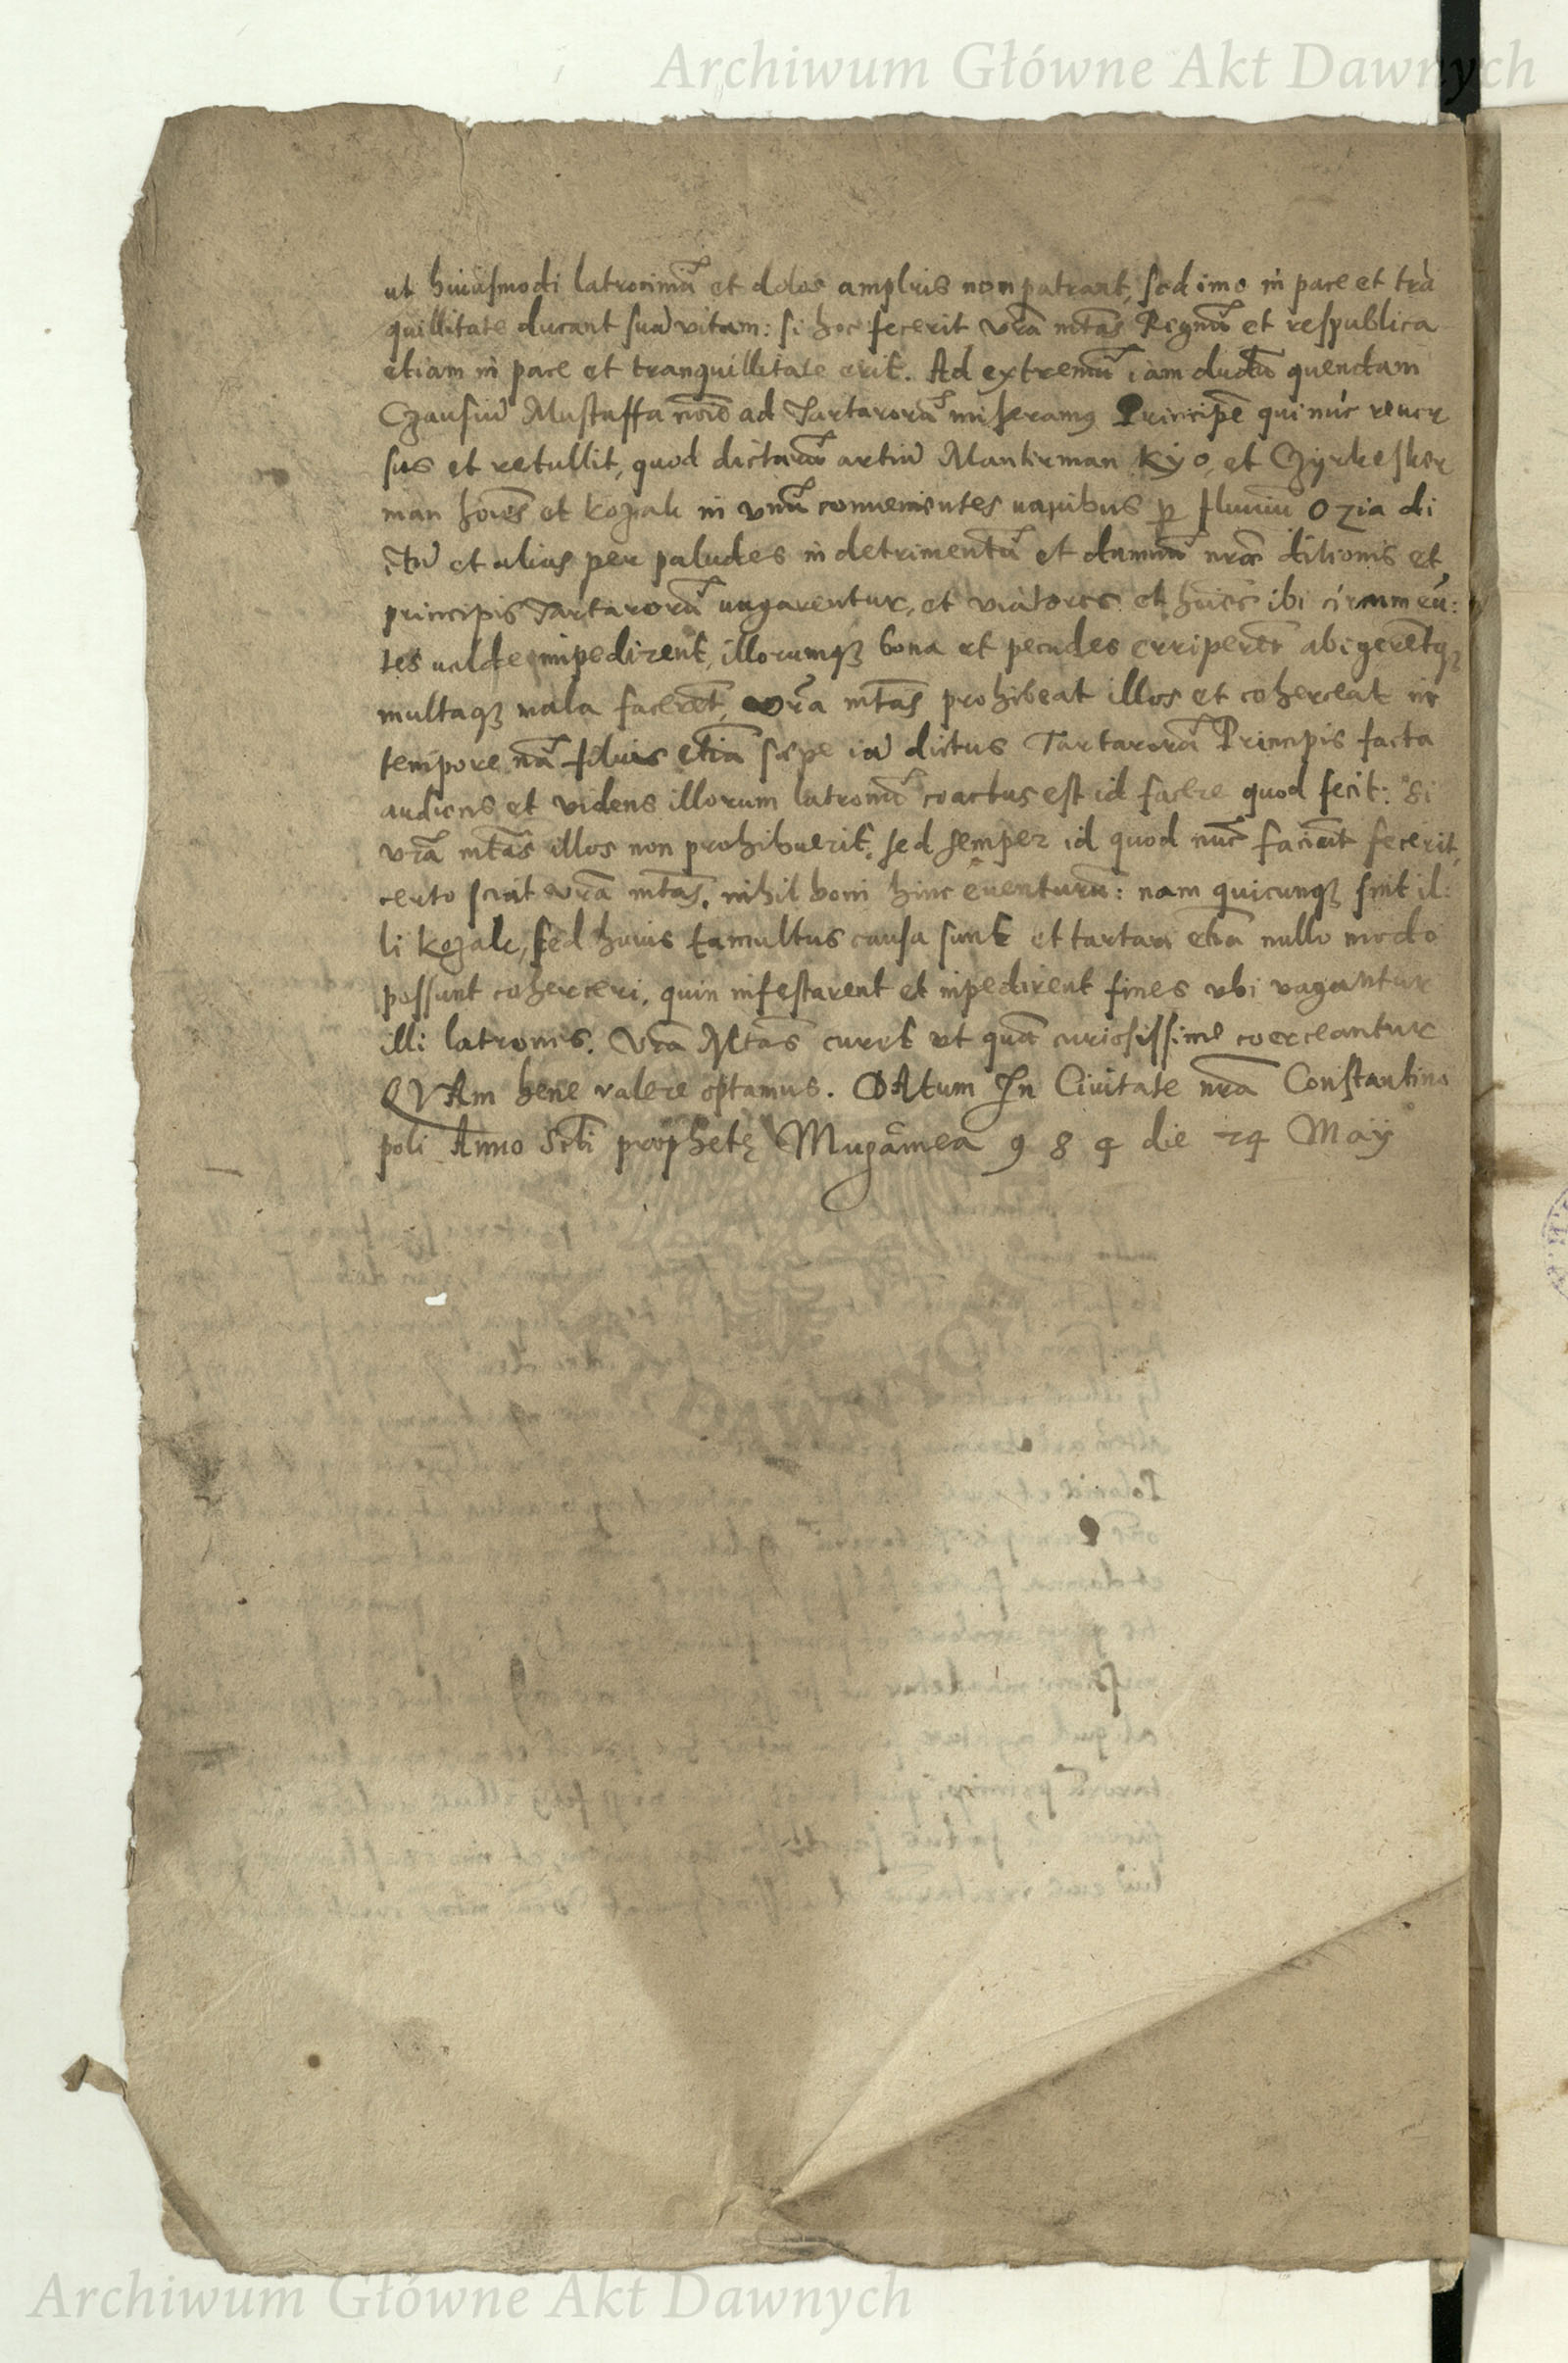 Archiwum Główne Akt Dawnych
ut huiusmodi latrociniā et dolos amplius non patrant, sed imo in pace et trā
quillitate ducant suā vitam: si hoc fecerit vrā mtās Regnū et respublica
etiam in pace et tranquillitate erit. Ad extremū iam dudū quendam
Czausiū Mustaffa noīe ad Tartarorū miseramus Principē qui nūc reuer
sus et retullit, quod dictarū artiū Mankirman Kyo, et Czyrkesker
man hoīes et kozak in vnū conuenientes nauibus p fluuiū Ozia di
ctū et alias per paludes in detrimentū et damnū nrāe ditionis et
principis Tartarorū uagarentur, et viatores et hoīes ibi circum eū:
tes ualde impedirent, illorumqȝ bona et pecudes erriperēt abigerētqȝ
multaqȝ mala facerēt, vrā mtās prohibeat illos et coherceat in
tempore nā filius etiā sæpe iā dictus Tartarorū Principis facta
audiens et videns illorum latronū coactus est id facere quod fecit: si
vrā mtās illos non prohibuerit, sed semper id quod nūc faciūt fecerit,
certo sciat vrā mtās, nihil boni hinc euenturū: nam quicunqȝ sint il:
li kozak, sed huius tumultus causa sunt et tartari etiā nullo modo
possunt coherceri, quin infestarent et inpedirent fines vbi vagantur
illi latrones. Vrā Mtās curet ut quā curiosissime coerceantur
QVAm bene valere optamus. DAtum In Ciuitate nrā Constantino
poli Anno Scti prophetę Mugamea 9 8 4 die 24 Maÿ
DAWNYCH
Archiwum Główne Akt Dawnych